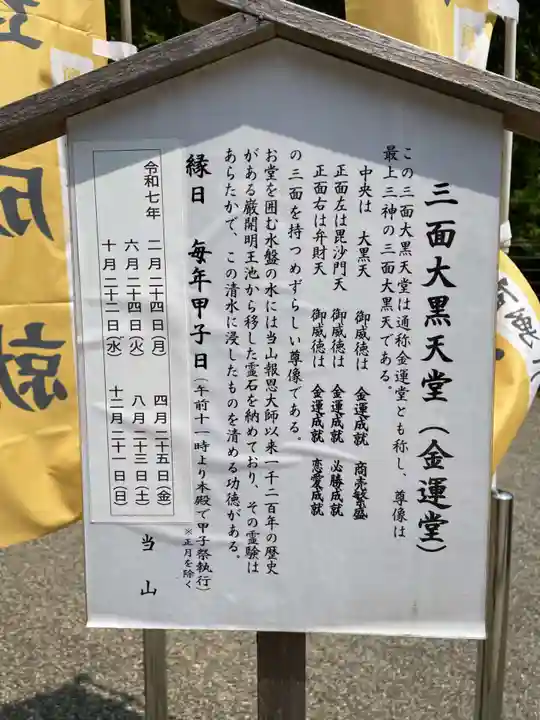 三面大黒天堂（金運堂）
この三面大黒天堂は通称金運堂とも称し、尊像は
最上三神の三面大黒天である。
中央は　大黒天　御威徳は　金運成就　商売繁盛
正面左は毘沙門天　御威徳は　金運成就　必勝成就
正面右は弁財天　御威徳は　金運成就　恋愛成就
の三面を持つめずらしい尊像である。
お堂を囲む水盤の水には当山報恩大師以来一千二百年の歴史
がある厳開明王池から移した霊石を納めており、その霊験は
あらたかで、この清水に浸したものを清める功徳がある。
縁日　毎年甲子日（午前十一時より本殿で甲子祭執行）
※正月を除く
令和七年　二月二十四日（月）　四月二十五日（金）
六月二十四日（火）　八月二十三日（土）
十月二十二日（水）　十二月二十一日（日）
当山
成
就